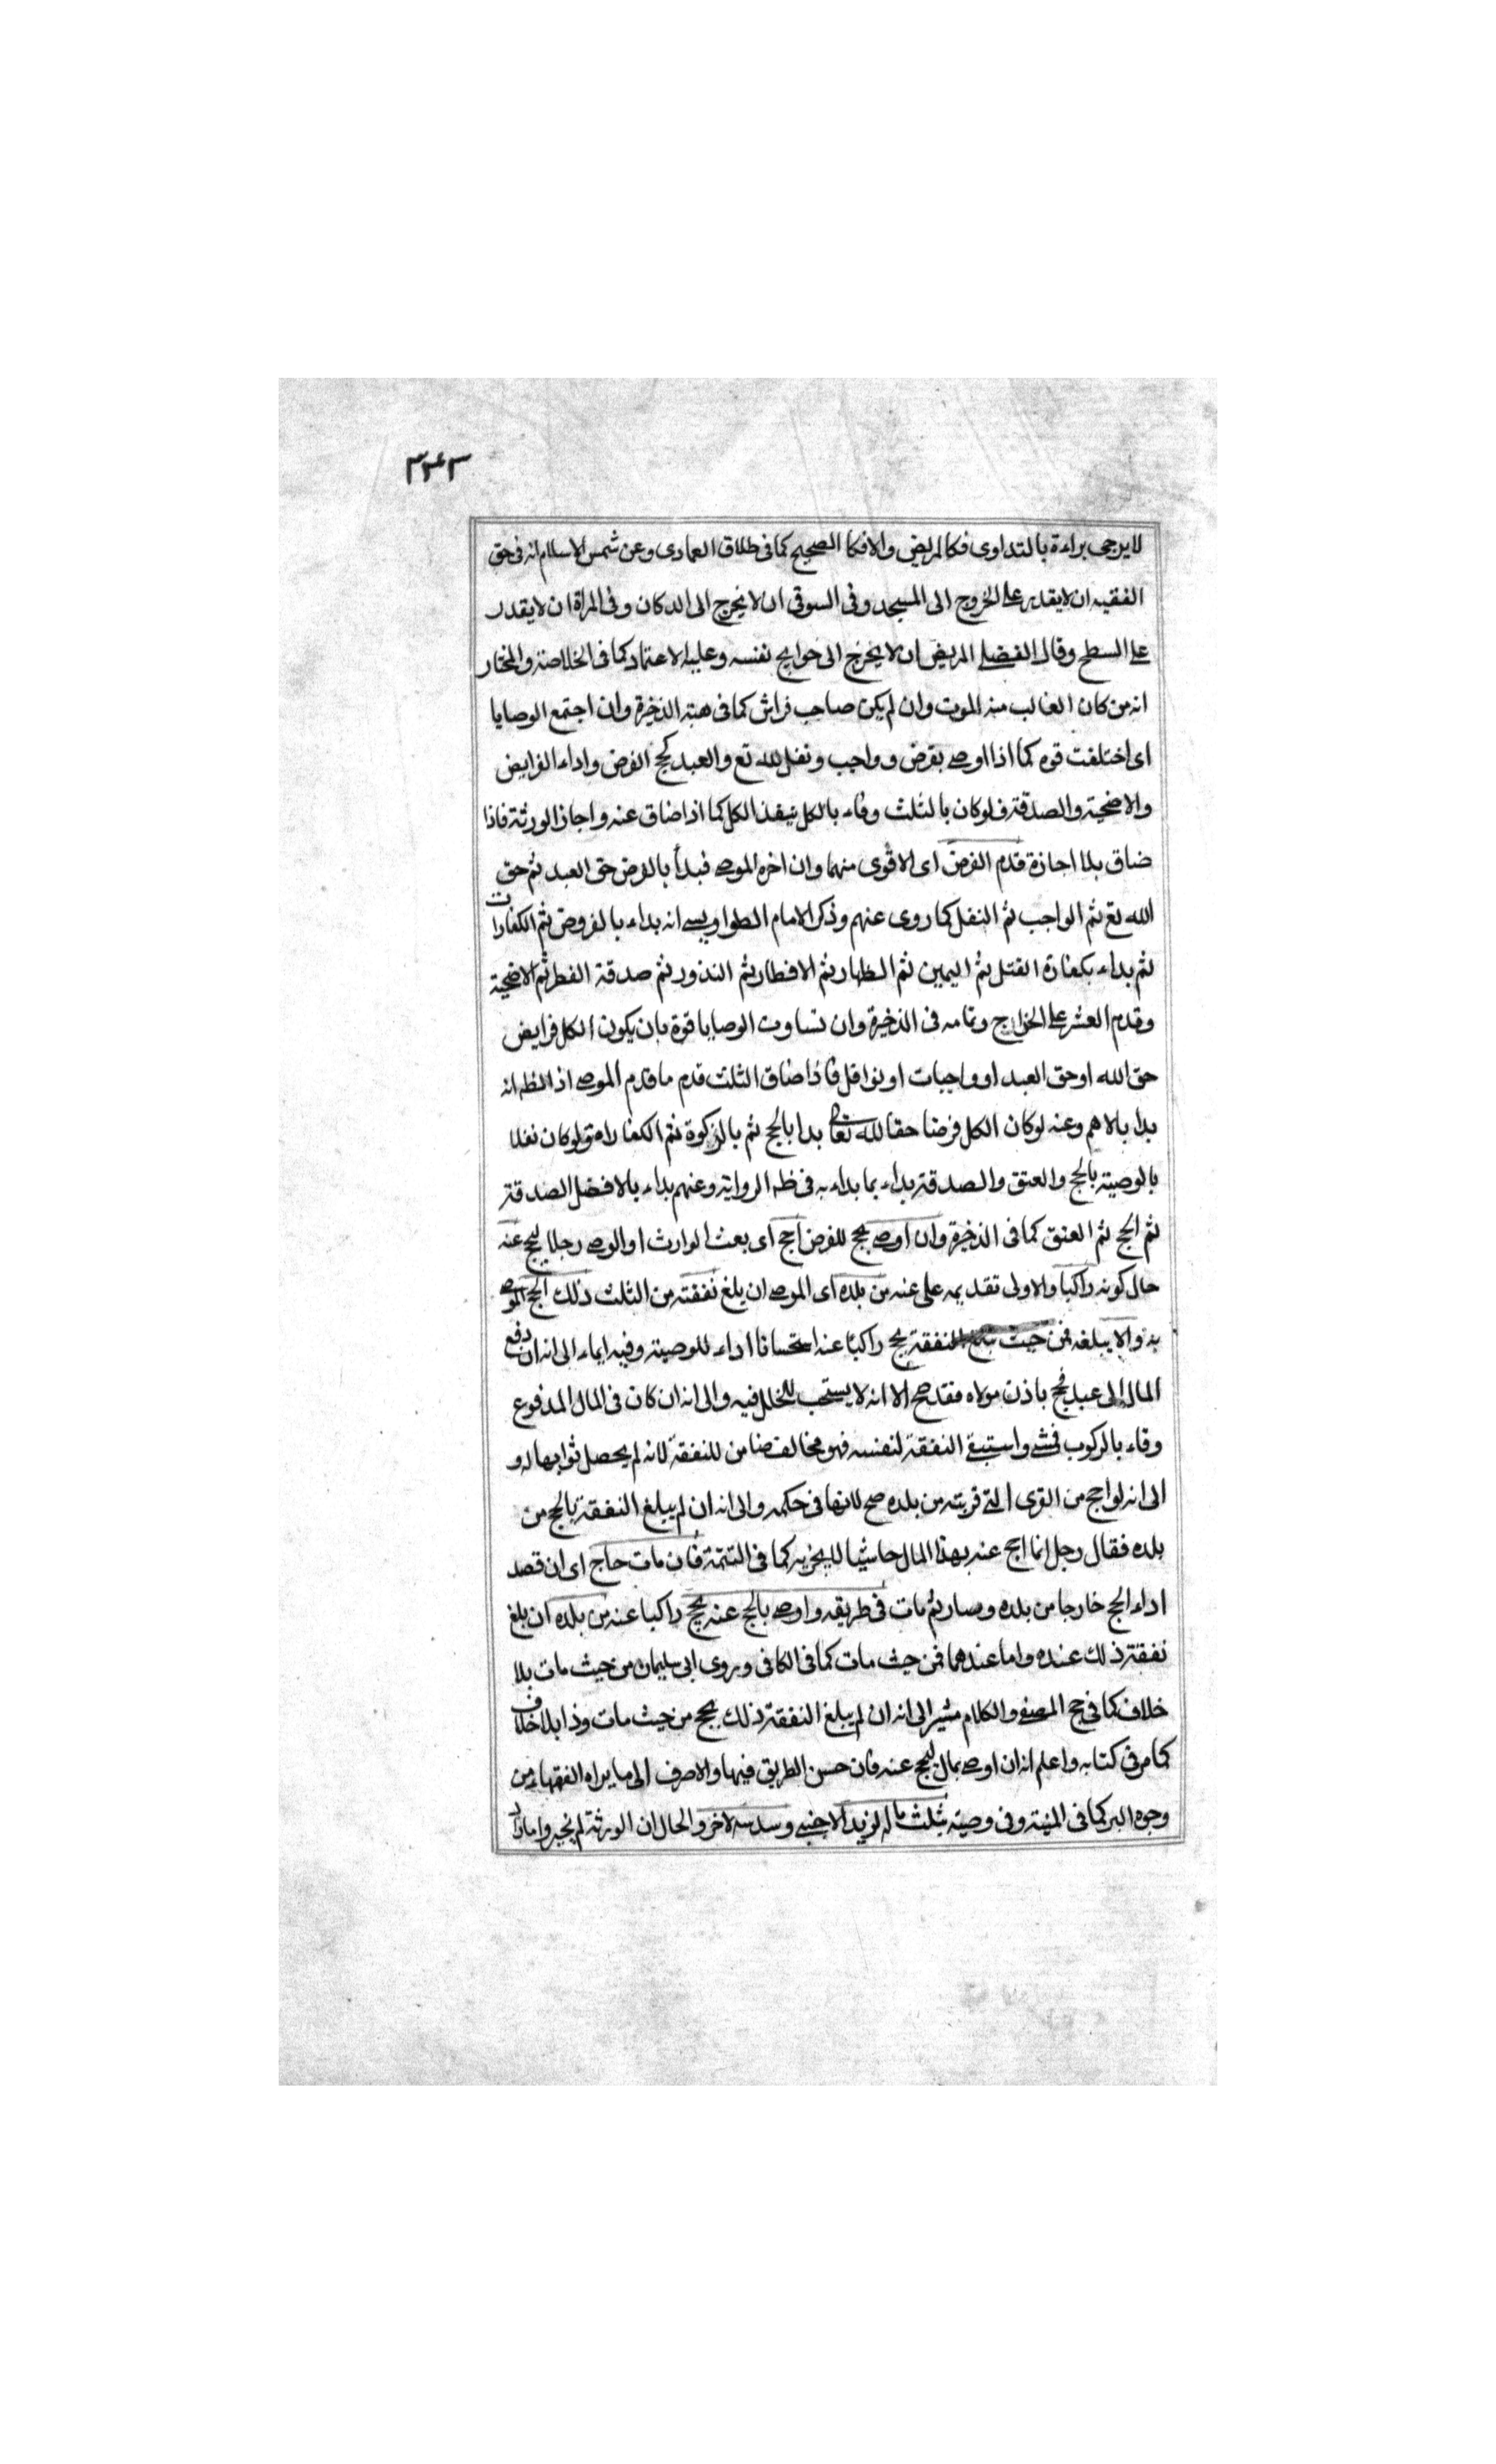 ٣٤٣
لا يرجى براءة بالتداوى فكالمريض والا فكا الصحيح كما فى طلاق العمادى وعن شمس الاسلام انه فى حق
الفقيه ان لا يقدر على الخروج الى المسجد وفى السوقى ان لا يخرج الى الدكان وفى المراة ان لا يقدر
على السطح وقال الفضلى المريض ان لا يخرج الى حوايج نفسه وعليه الاعتماد كما فى الخلاصة والمختار
انه من كان الغالب منه الموت وان لم يكن صاحب فراش كما فى هبة الذخيرة وان اجتمع الوصايا
اى اختلفت قوه كما اذا اوصى بفرض وواجب ونفل لله تع والعبد كحج الفرض واداء الفرايض
والاضحية والصدقة فلو كان بالثلث وفاء بالكل ينفذ الكل كما اذا ضاق عنه واجاز الورثة فاذا
ضاق بلا اجازة قدم الفرض اى الاقوى منهما وان اخره الموصى فيبدأ بالفرض حق العبد ثم حق
الله تع ثم الواجب ثم النفل كما روى عنهم وذكر الامام الطواويسى انه بداء بالفروض ثم الكفارات
ثم بداء بكفارة القتل ثم اليمين ثم الظهار ثم الافطار ثم النذور ثم صدقة الفطر ثم الاضحية
وقدم العشر على الخراج وتمامه فى الذخيرة وان تساوت الوصايا قوة بان يكون الكل فرايض
حق الله او حق العبد او واجبات او نوافل فاذا ضاق الثلث قدم ما قدم الموصى اذ الظه انه
بدا بالاهم وعنه لو كان الكل فرضا حقا لله تعالى بدا بالحج ثم بالزكوة ثم الكفارات ولو كان نفلا
بالوصية بالحج والعتق والصدقة بداء بما بداء به فى ظه الرواية وعنهم بداء بالافضل الصدقة
ثم الحج ثم العتق كما فى الذخيرة وان اوصى بحج للفرض احج اى بعث الوارث او الوصى رجلا ليحج عنه
حال كونه راكبا والاولى تقديمه على عنه من بلده اى الموصى ان بلغ نفقته من الثلث ذلك الحج الموصى
به والا يبلغه فمن حيث النفقة يحج راكبا عنه استحسانا اداء للوصية وفيه ايماء الى انه ان دفع
المال الى عبد فحج باذن مولاه فقد صح الا انه لا يستحب للخلل فيه والى انه ان كان فى المال المدفوع
وفاء بالركوب فمشى واستبقى النفقة لنفسه فهو مخالف ضامن للنفقة لانه لم يحصل ثوابها له و
الى انه لو احج من القرى التى قربت من بلده صح لانها فى حكمه والى انه ان لم يبلغ النفقة بالحج من
بلده فقال رجل انا احج عنه بهذا المال ماشيا لا يجزيه كما فى التتمة فان مات حاج اى ان قصد
اداء الحج خارجا من بلده وصار ثم مات فى طريقه واوصى بالحج عنه يحج راكبا عنه من بلده ان بلغ
نفقته ذلك عنده واما عندهما فمن حيث مات كما فى الكافى وروى ابى سليمان من حيث مات بلا
خلاف كما فى حج المصفى والكلام مشير الى انه ان لم يبلغ النفقة ذلك يحج من حيث مات وذا بلا خلاف
كما مر فى كتابه واعلم انه ان اوصى بمال ليحج عنه فان حسن الطريق فيها والا صرف الى ما يراه الفقهاء من
وجوه البر كما فى المنية وفى وصية بثلث ماله لزيد الاجنبى وسدسه لاخر والحال ان الورثة لم يجيزوا